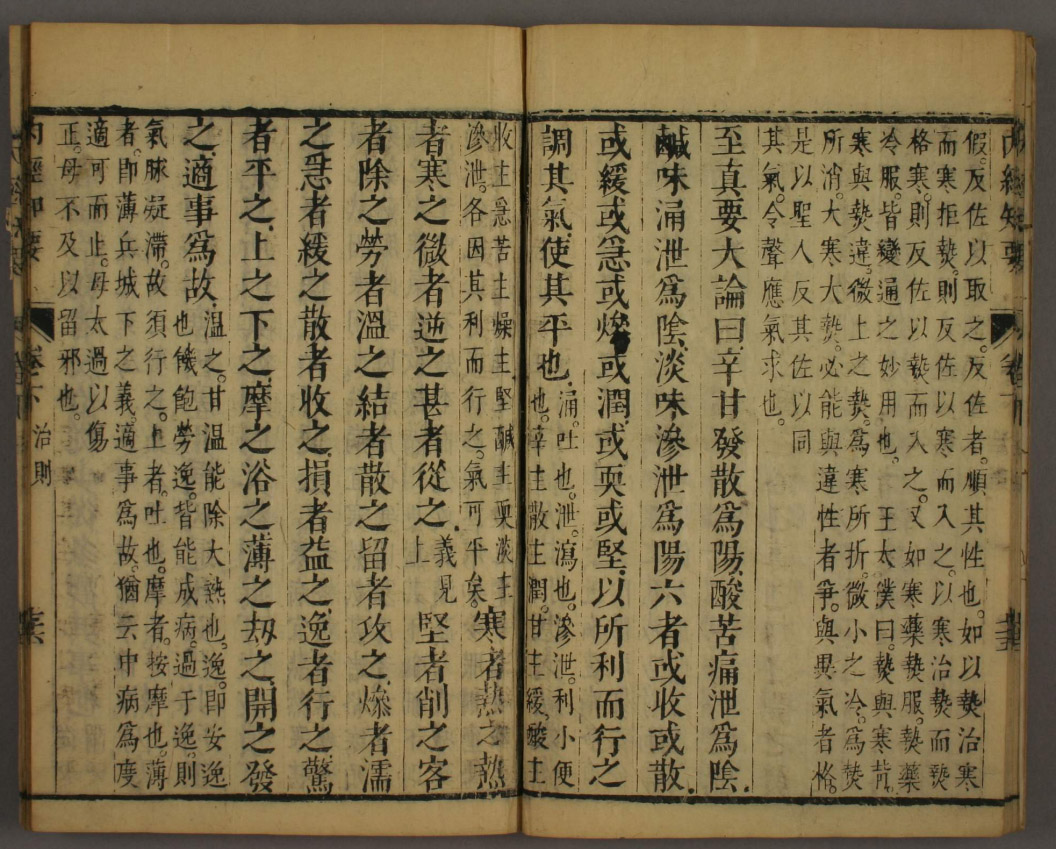 內經知要
假。反佐以取之。反佐者。順其性也。如以𤍠治寒
而寒拒𤍠。則反佐以寒而入之。以寒治𤍠而𤍠
格寒。則反佐以𤍠而入之。又如寒藥𤍠服。𤍠藥
冷服。皆變通之妙用也。王太僕曰。𤍠與寒背
寒與𤍠違。微小之𤍠。爲寒所折。微小之冷。爲𤍠
所消。大寒大𤍠。必能與違性者爭。與異氣者格。
是以聖人反其佐以同
其氣。令聲應氣求也。
至真要大論曰。辛甘發散爲陽。酸苦涌泄爲陰。
鹹味涌泄爲陰。淡味滲泄爲陽。六者或收或散。
或緩或急。或燥或潤。或耎或堅。以所利而行之
調其氣使其平也。涌。吐也。泄。瀉也。滲泄。利小便
也。辛主散主潤。甘主緩。酸主
收主急苦主燥主堅鹹主耎淡主
滲泄。各因其利而行之。氣可平矣。寒者熱之熱
者寒之。微者逆之。甚者從之。義見上堅者削之。客
者除之。勞者溫之。結者散之。留者攻之。燥者濡
之。急者緩之。散者收之。損者益之。逸者行之。驚
者平之。上之下之。摩之浴之。薄之刼之。開之發
之。適事爲故。溫之。甘溫能除大熱也。逸。卽安逸
也。饑飽勞逸。皆能成病。過于逸。則
氣脉凝滯。故須行之。上者。吐也。摩者。按摩也。薄
者。卽薄兵城下之義。適事爲故。猶云中病爲度
適可而止。毋太過以傷
正。毋不及以留邪也。
內經知要
卷下
治則